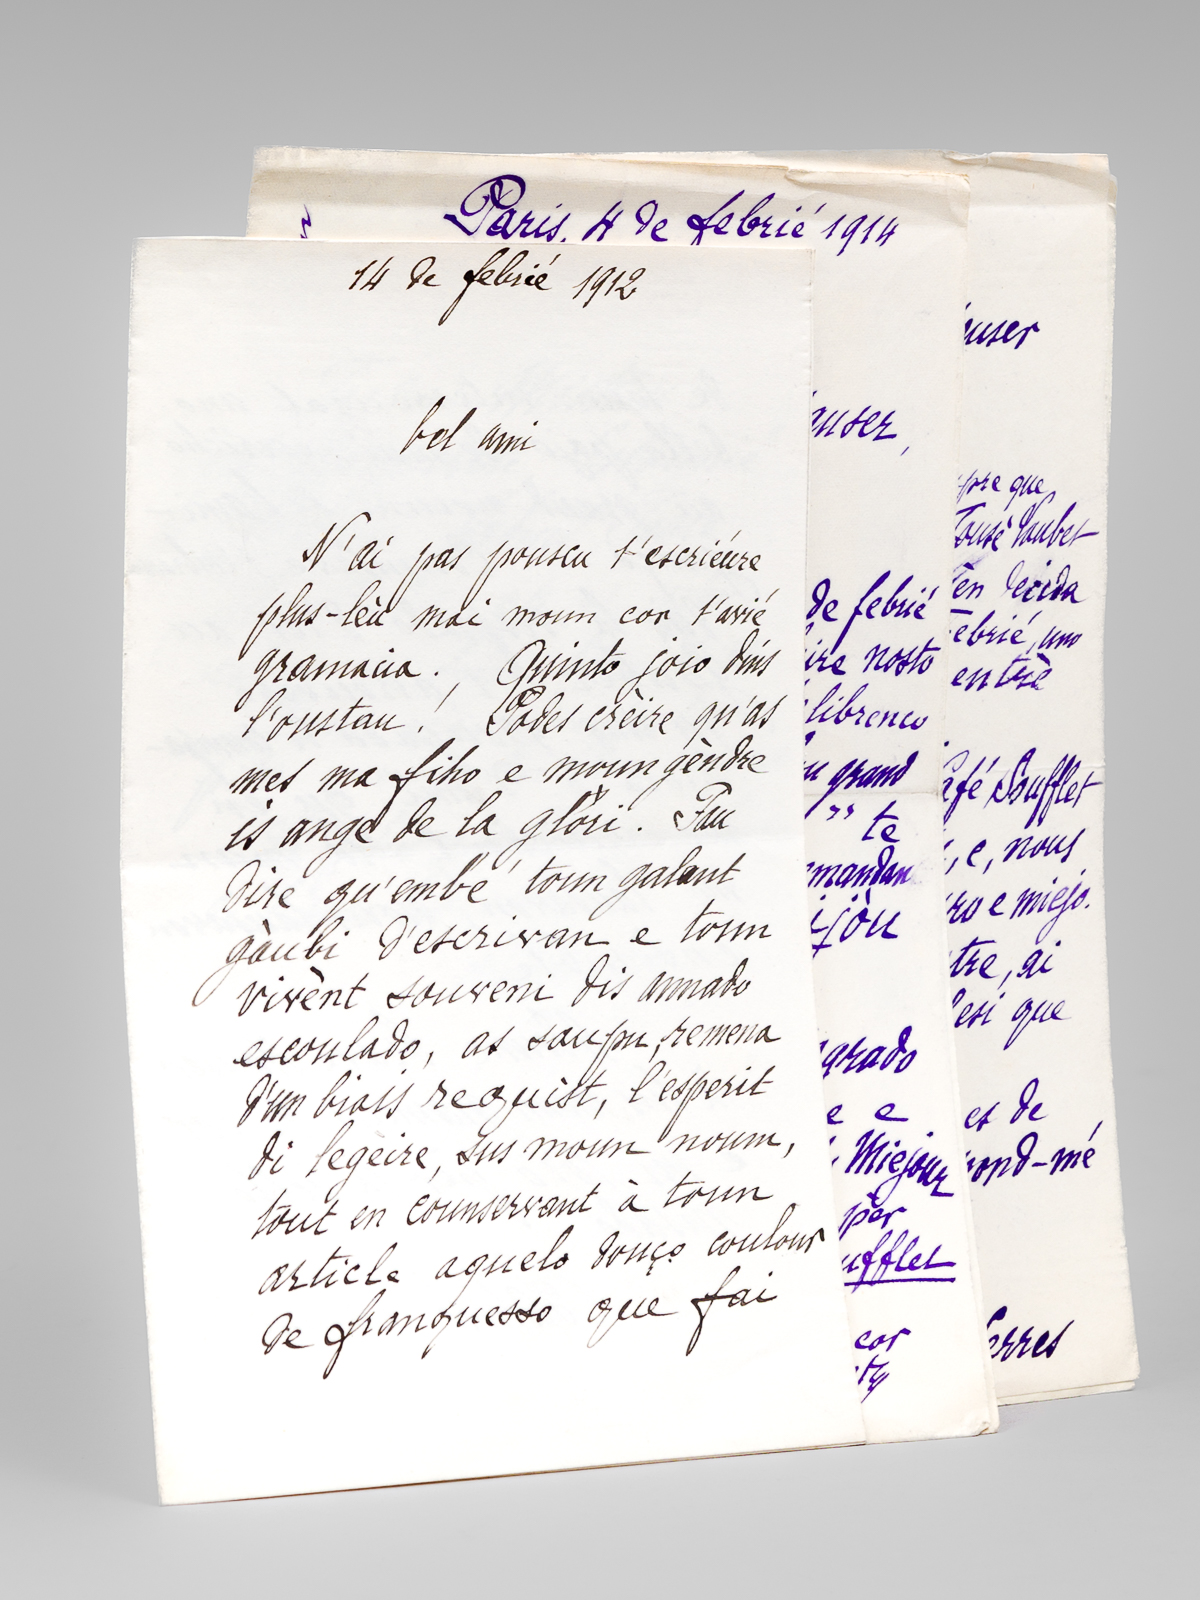 14 de febrié 1912
bel ami
N'ai pas pouscu t'escriéure
plus-lèu mai moun cor t'avié
gramacia. Quinto joio dins
l'oustau! Podes crèire qu'as
mes ma fiho e moun gèndre
is ange de la glòri. Fau
dire qu'embé toun galant
gàubi d'escrivan e toun
vivènt souveni dis annado
escoulado, as saupu, remena
d'un biais requist, l'esperit
di legèire, sus moun noum,
tout en counservant à toun
article aquelo douço coulour
de franquesso que fai
Paris. 4 de febrié 1914
auser,
de febrié
ire nosto
librenco
u grand
" te
mandan
ijòu
grado
e e
Miejour
pèr
ufflet
cor
auser
pre que
Jousè Loubet
en decida
ebrié, uno
entrè
afé Soufflet
, e, nous
ro e miejo.
tre, ai
esi que
es de
pond-mé
Serres